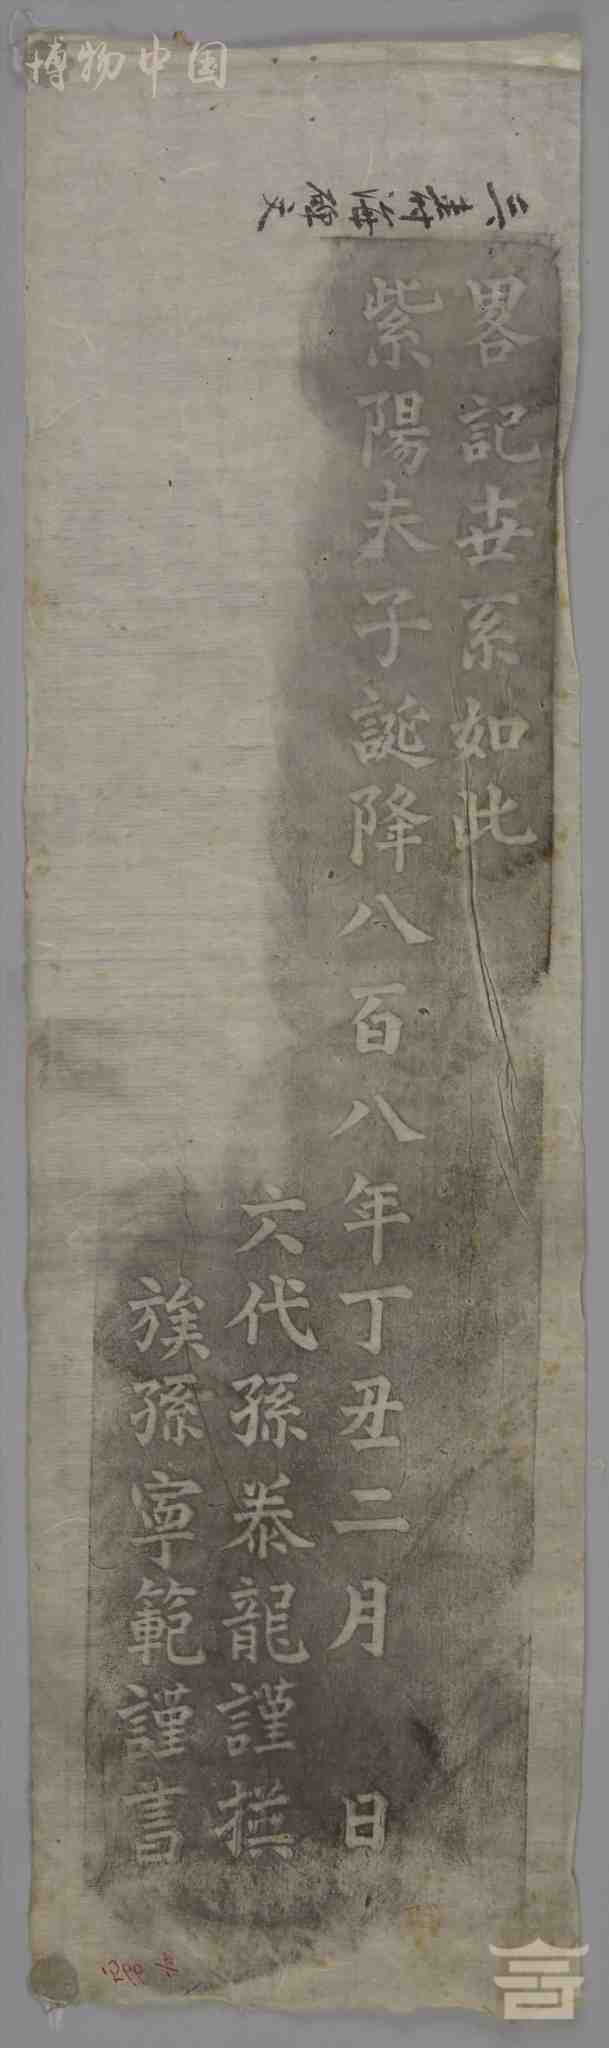 博物中国
畧記世系如此
紫陽夫子誕降八百八年丁丑二月 日
六代孫泰龍謹撰
族孫寧範謹書